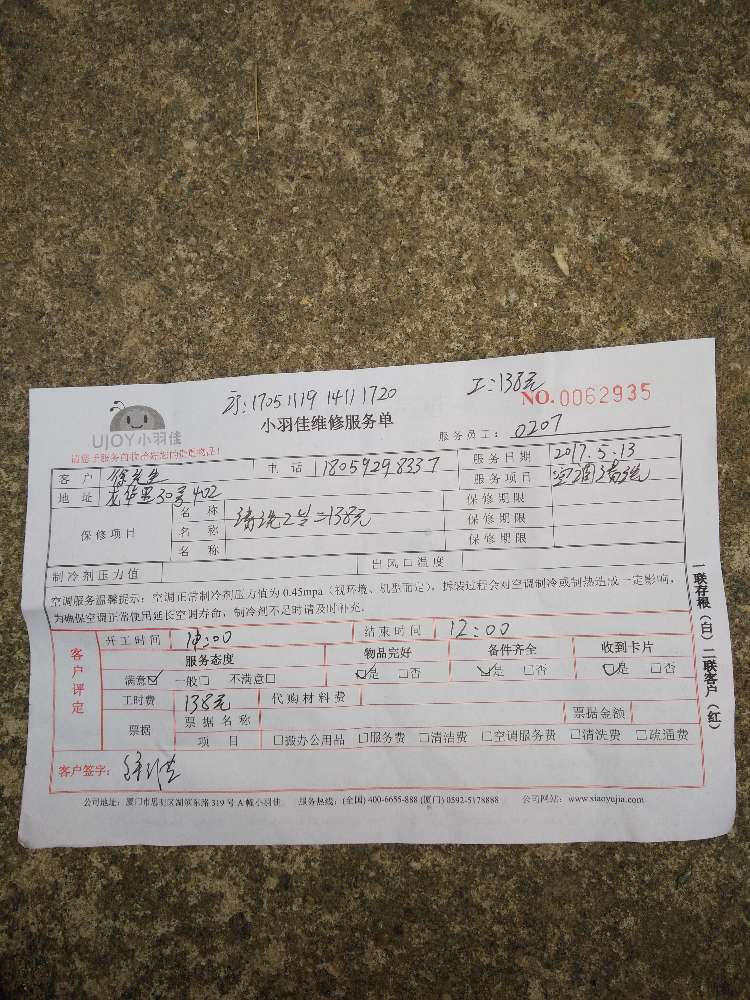 方:170511191411720
工:138元
NO.0062935
UJOY小羽佳
小羽佳维修服务单
服务员工: 0207
客户 徐先生 电话 18059298337 服务日期 2017.5.13
地址 龙华里30号402 服务项目 空调清洗
保修项目 名称 清洗2台=138元 保修期限
名称 保修期限
名称 保修期限
制冷剂压力值 出风口温度
空调服务温馨提示:空调正常制冷剂压力值为0.45mpa(视环境、机型而定),拆装过程会对空调制冷或制热造成一定影响,
为确保空调正常使用延长空调寿命,制冷剂不足时请及时补充。
客户评定 开工时间 结束时间 12:00
服务态度 物品完好 备件齐全 收到卡片
满意☑ 一般□ 不满意□ ☑是 □否 ☑是 □否 ☑是 □否
工时费 138元 代购材料费
票据 票据名称 票据金额
项目 □搬办公用品 □服务费 □清洁费 □空调服务费 □清洗费 □疏通费
客户签字:
公司地址:厦门市思明区湖滨东路319号A幢小羽佳 服务热线:(全国)400-6655-888 (厦门)0592-5178888 公司网站:www.xiaoyujia.com
一联存根(白) 二联客户(红)